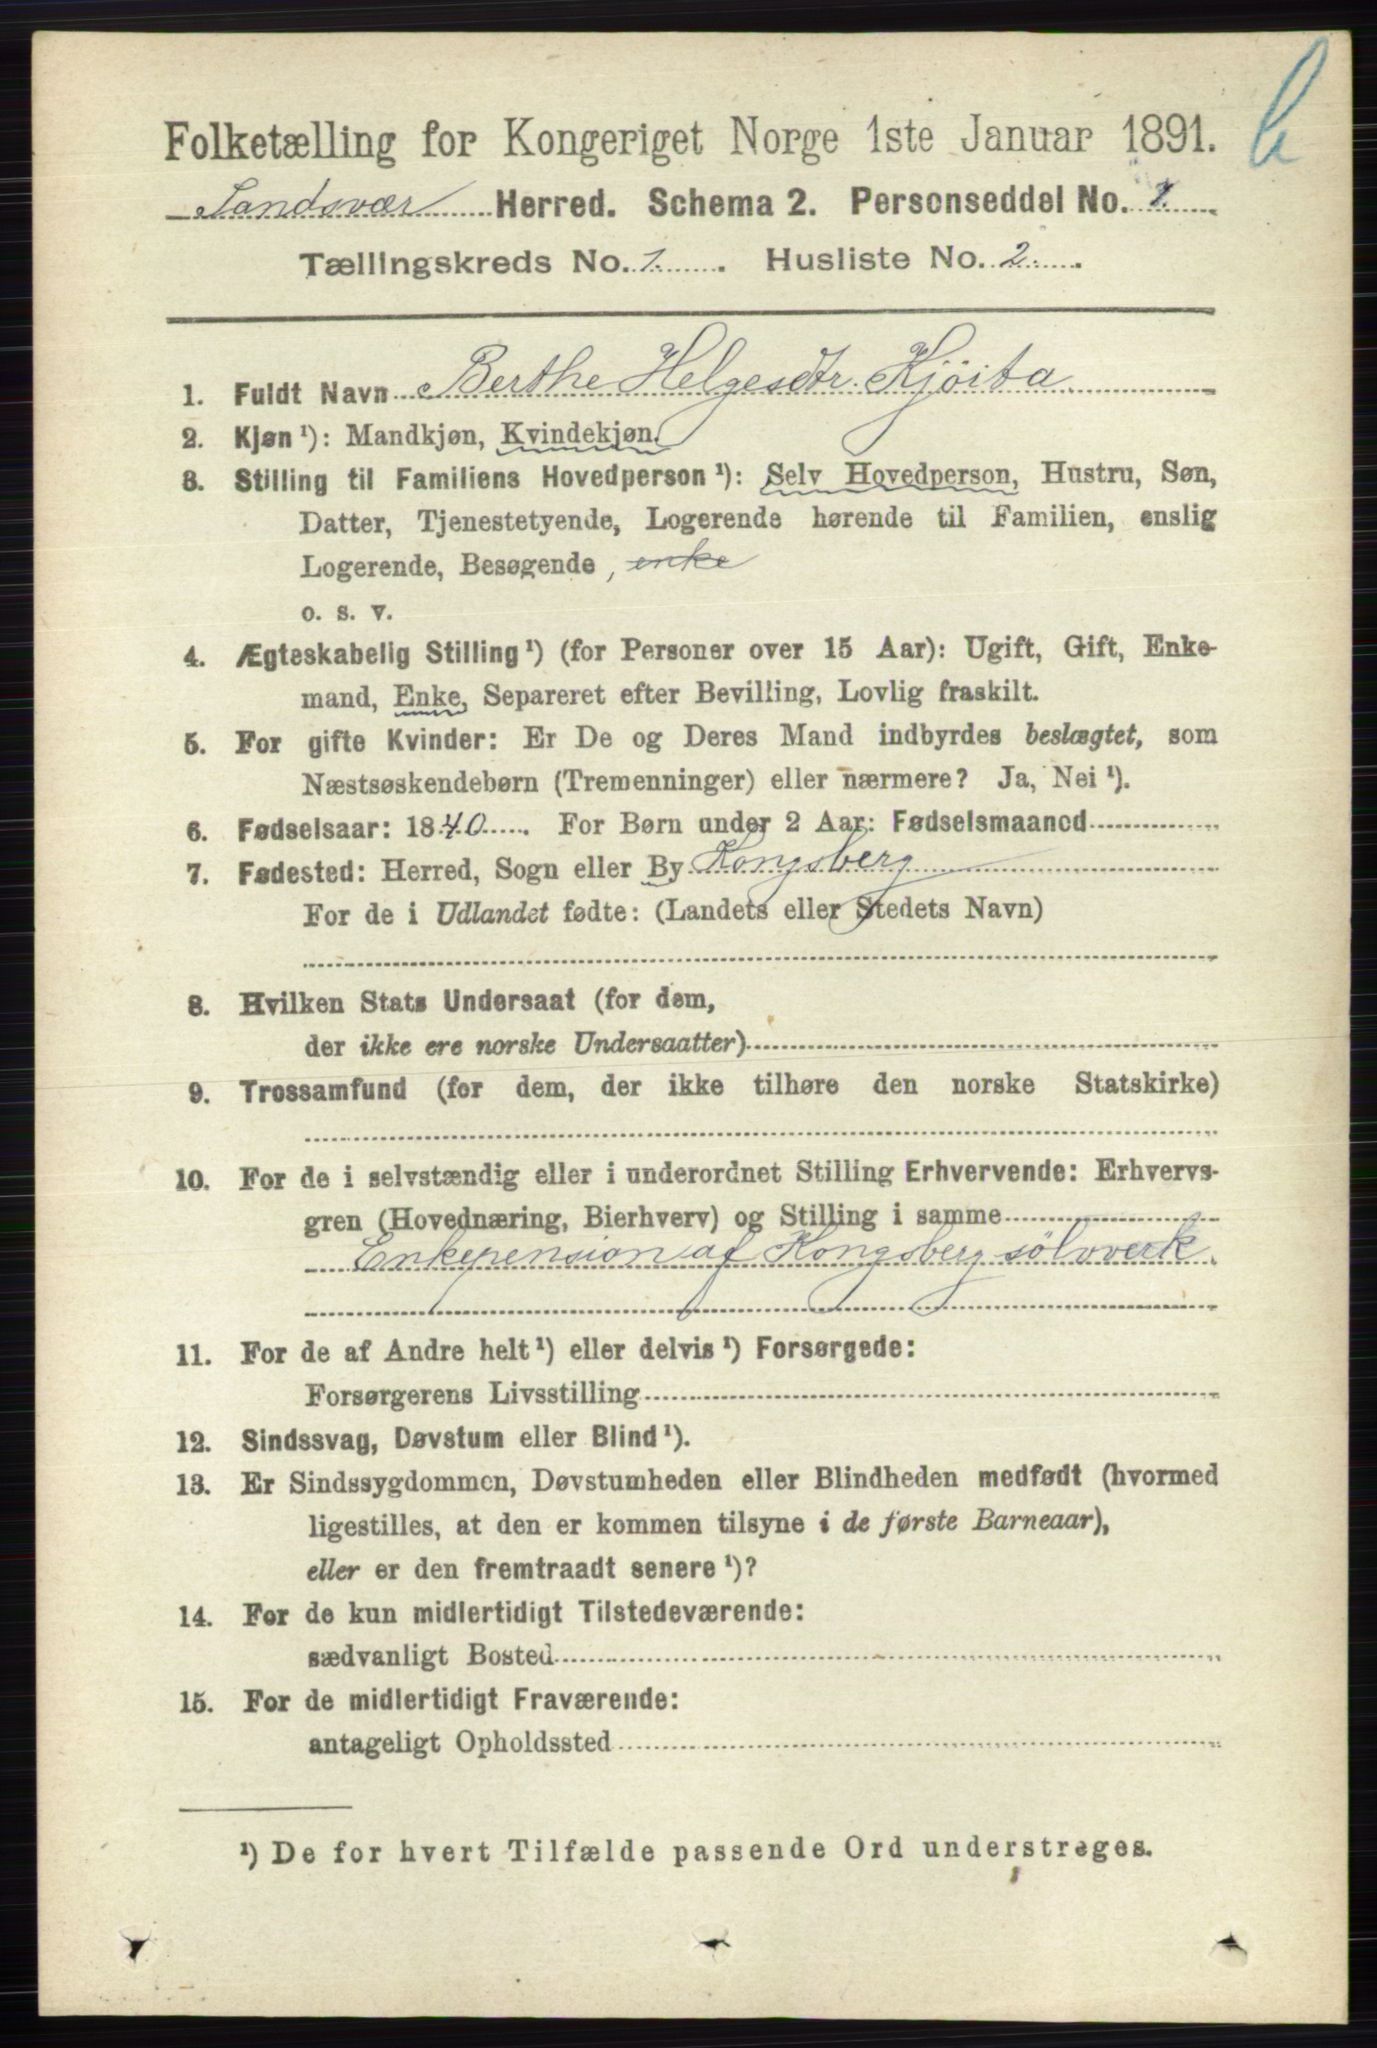 b
Folketælling for Kongeriget Norge 1ste Januar 1891.
Sandsvær Herred. Schema 2. Personseddel No. 1.
Tællingskreds No. 1. Husliste No. 2.
1. Fuldt Navn Berthe Helgesdtr. Kjöita
2. Kjøn ¹): Mandkjøn, Kvindekjøn.
3. Stilling til Familiens Hovedperson ¹): Selv Hovedperson, Hustru, Søn,
Datter, Tjenestetyende, Logerende hørende til Familien, enslig
Logerende, Besøgende, enke
o. s. v.
4. Ægteskabelig Stilling ¹) (for Personer over 15 Aar): Ugift, Gift, Enke-
mand, Enke, Separeret efter Bevilling, Lovlig fraskilt.
5. For gifte Kvinder: Er De og Deres Mand indbyrdes beslægtet, som
Næstsøskendebørn (Tremenninger) eller nærmere? Ja, Nei ¹).
6. Fødselsaar: 1840. For Børn under 2 Aar: Fødselsmaaned
7. Fødested: Herred, Sogn eller By Kongsberg
For de i Udlandet fødte: (Landets eller Stedets Navn)
8. Hvilken Stats Undersaat (for dem,
der ikke ere norske Undersaatter)
9. Trossamfund (for dem, der ikke tilhøre den norske Statskirke)
10. For de i selvstændig eller i underordnet Stilling Erhvervende: Erhvervs-
gren (Hovednæring, Bierhverv) og Stilling i samme
Enkepension af Kongsberg sölvverk.
11. For de af Andre helt ¹) eller delvis ¹) Forsørgede:
Forsørgerens Livsstilling
12. Sindssvag, Døvstum eller Blind ¹).
13. Er Sindssygdommen, Døvstumheden eller Blindheden medfødt (hvormed
ligestilles, at den er kommen tilsyne i de første Barneaar),
eller er den fremtraadt senere ¹)?
14. For de kun midlertidigt Tilstedeværende:
sædvanligt Bosted
15. For de midlertidigt Fraværende:
antageligt Opholdssted
¹) De for hvert Tilfælde passende Ord understreges.